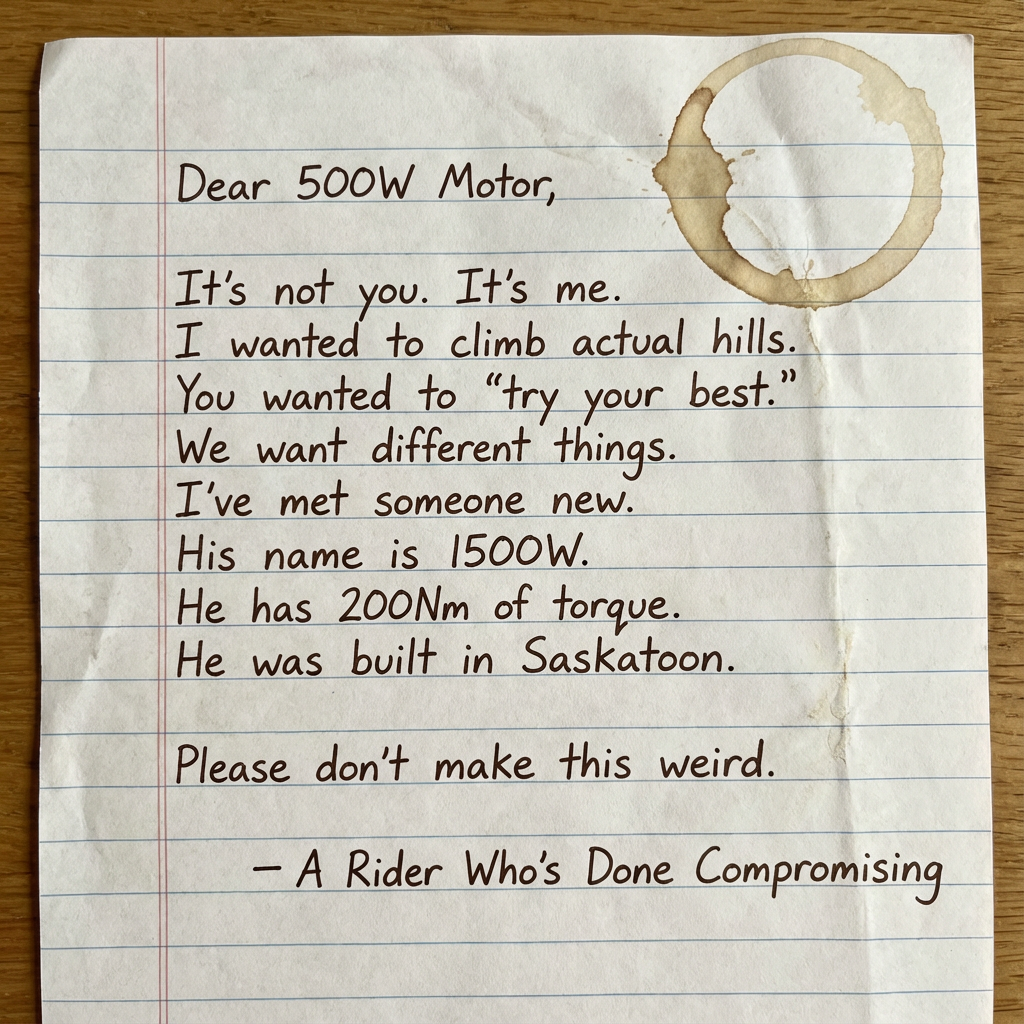 Dear 500W Motor,
It's not you. It's me.
I wanted to climb actual hills.
You wanted to “try your best.”
We want different things.
I've met someone new.
His name is 1500W.
He has 200Nm of torque.
He was built in Saskatoon.
Please don't make this weird.
– A Rider Who's Done Compromising